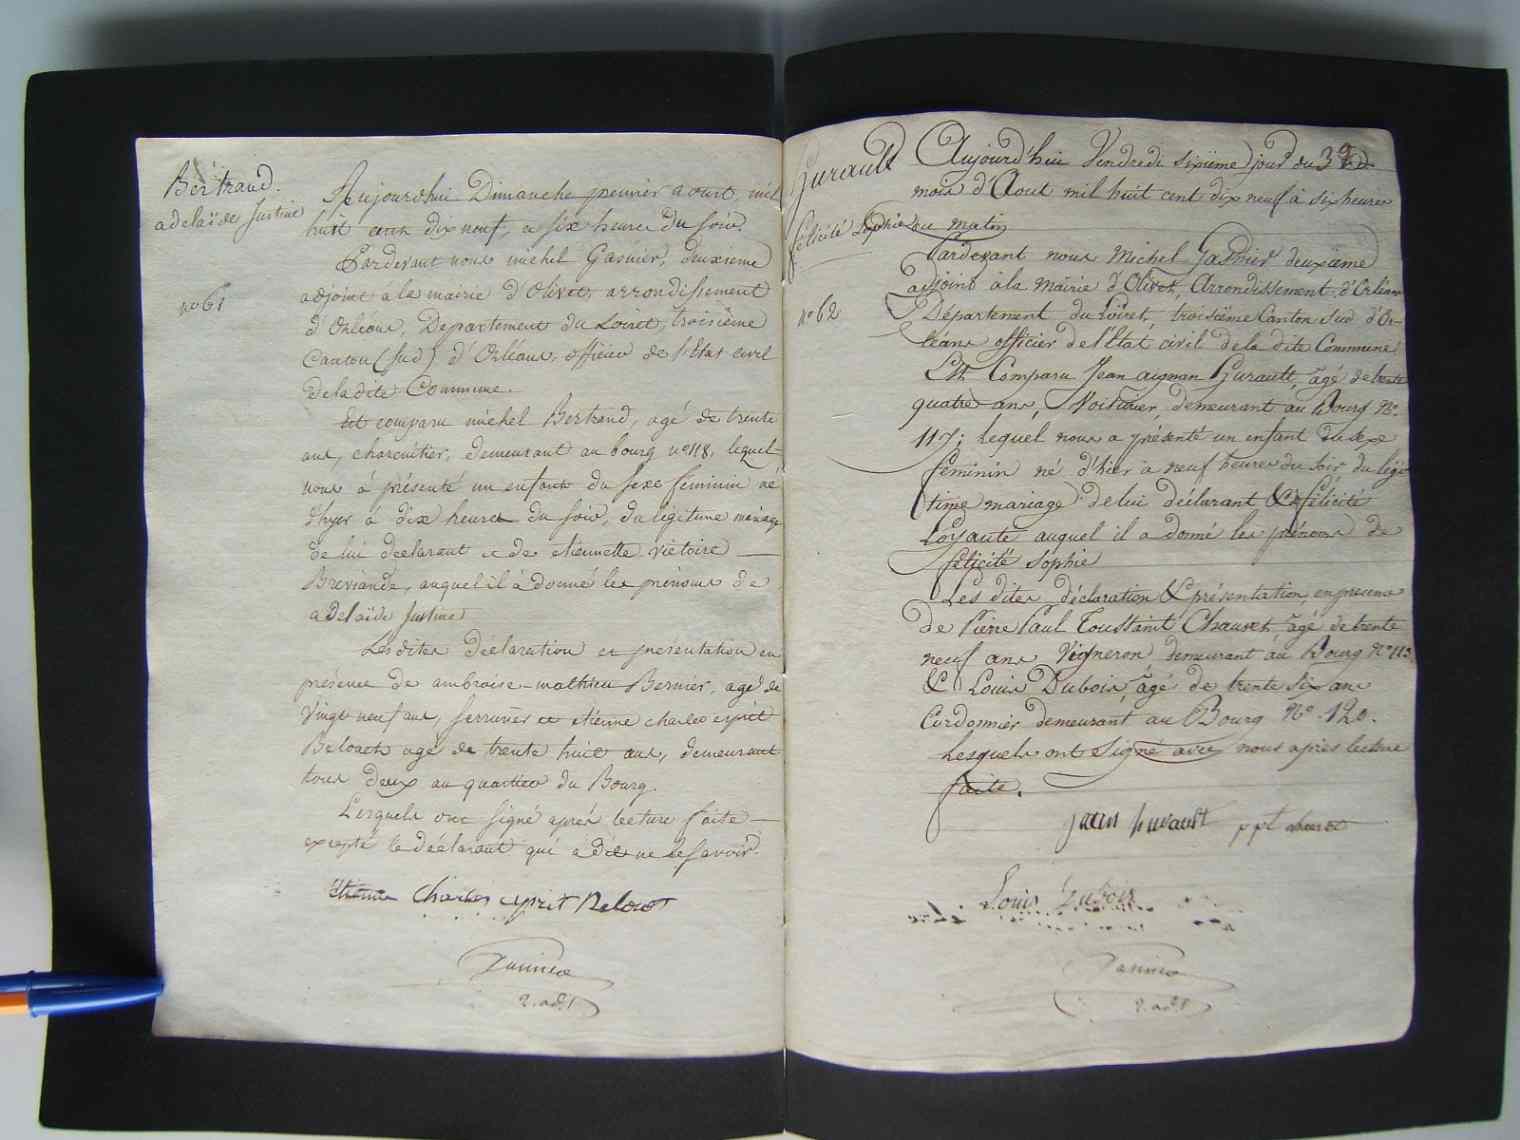 Bertrand.
adelaïde Justine
no 61
Aujourdhui Dimanche premier aoust, mil
huit cent dix neuf, a six heures du soir.
Pardevant nous michel Gasnier, deuxieme
adjoint á la mairie d'Olivet, arrondissement
d'Orléans, Département du Loiret, troisieme
Canton (sud) d'Orléans, officier de l'Etat civil
de la dite Commune.
Est comparu michel Bertrand, agé de trente
ans, charcutier, demeurant au bourg no 118, lequel
nous á présenté un enfant du sexe feminin né
d'hyer á dix heures du soir, du légitime mariage
de lui declarant et de etiennette victoire
Breviande, auquel il à donné les prénoms de
adelaïde Justine
Les dites déclaration et presentation en
présence de ambroise mathieu Bernier, agé de
vingt neuf ans, serrurier et etienne charles esprit
agé de trente huit ans, demeurant
tous deux au quartier du Bourg.
Lesquels ont signé après lecture faite
excepté le déclarant qui a dit ne le savoir.
Etienne Charles esprit
2. adjt
Gurault
félicité Sophie
no 62
Aujourd'hui Vendredi sixième jour du
mois d'Aout mil huit cent dix neuf à six heures
du matin
Pardevant nous Michel Gasnier deuxième
adjoint à la mairie d'Olivet, Arrondissement d'Orléans
Département du Loiret, troisième Canton Sud d'Or-
léans officier de l'Etat civil de la dite Commune
Est Comparu Jean aignan Gurault, âgé de trente
quatre ans, Voiturier, demeurant au Bourg No.
117; lequel nous a présenté un enfant du sexe
féminin né d'hier à neuf heures du soir du légi-
time mariage de lui déclarant & de félicité
Loyauté auquel il a donné les prénoms de
félicité Sophie
Les dites déclaration & présentation, en présence
de Pierre Paul Toussaint Chauvet, âgé de trente
neuf ans Vigneron demeurant au Bourg No 113
& Louis Dubois, âgé de trente six ans
Cordonnier demeurant au Bourg No. 120.
Lesquels ont Signé avec nous après lecture
faite.
jean gurault ppt chauvet
Louis Dubois
2. adjt